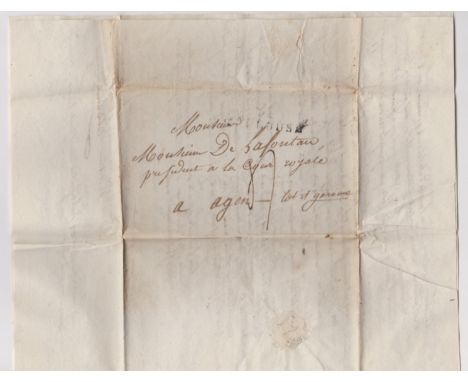 Monsieur
Monsieur De Lafontan,
president a la Cour royale
a agen — lot et garonne